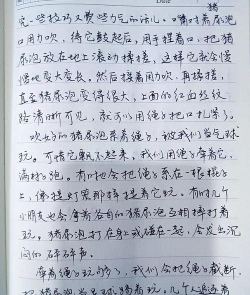 猪
究一些技巧又费些力气的活儿。嘴对着尿泡
口用力吹，待它鼓起后，用手捏着口，把猪
尿泡放在地上滚动揉搓，这样它就会慢
慢地变大变长。然后接着用力吹，再揉搓，
直至猪尿泡变得很大，上面的红血丝纹
路清晰可见，就可以用绳子把口扎紧了。
吹好的猪尿泡系着绳子，被我们当气球
玩。可惜它飘不起来，我们用绳子牵着它，
满村跑。有时也会把绳子系在一根棍子
上，像提灯笼那样提着它玩。有时几个
小朋友也会拿着各自的猪尿泡互相摔打着
玩。猪尿泡打在身上或碰在一起，会发出沉
闷的砰砰声。
牵着绳子玩够了，我们会把绳子截断，
把猪尿泡当足球踢着玩。几个人追逐着